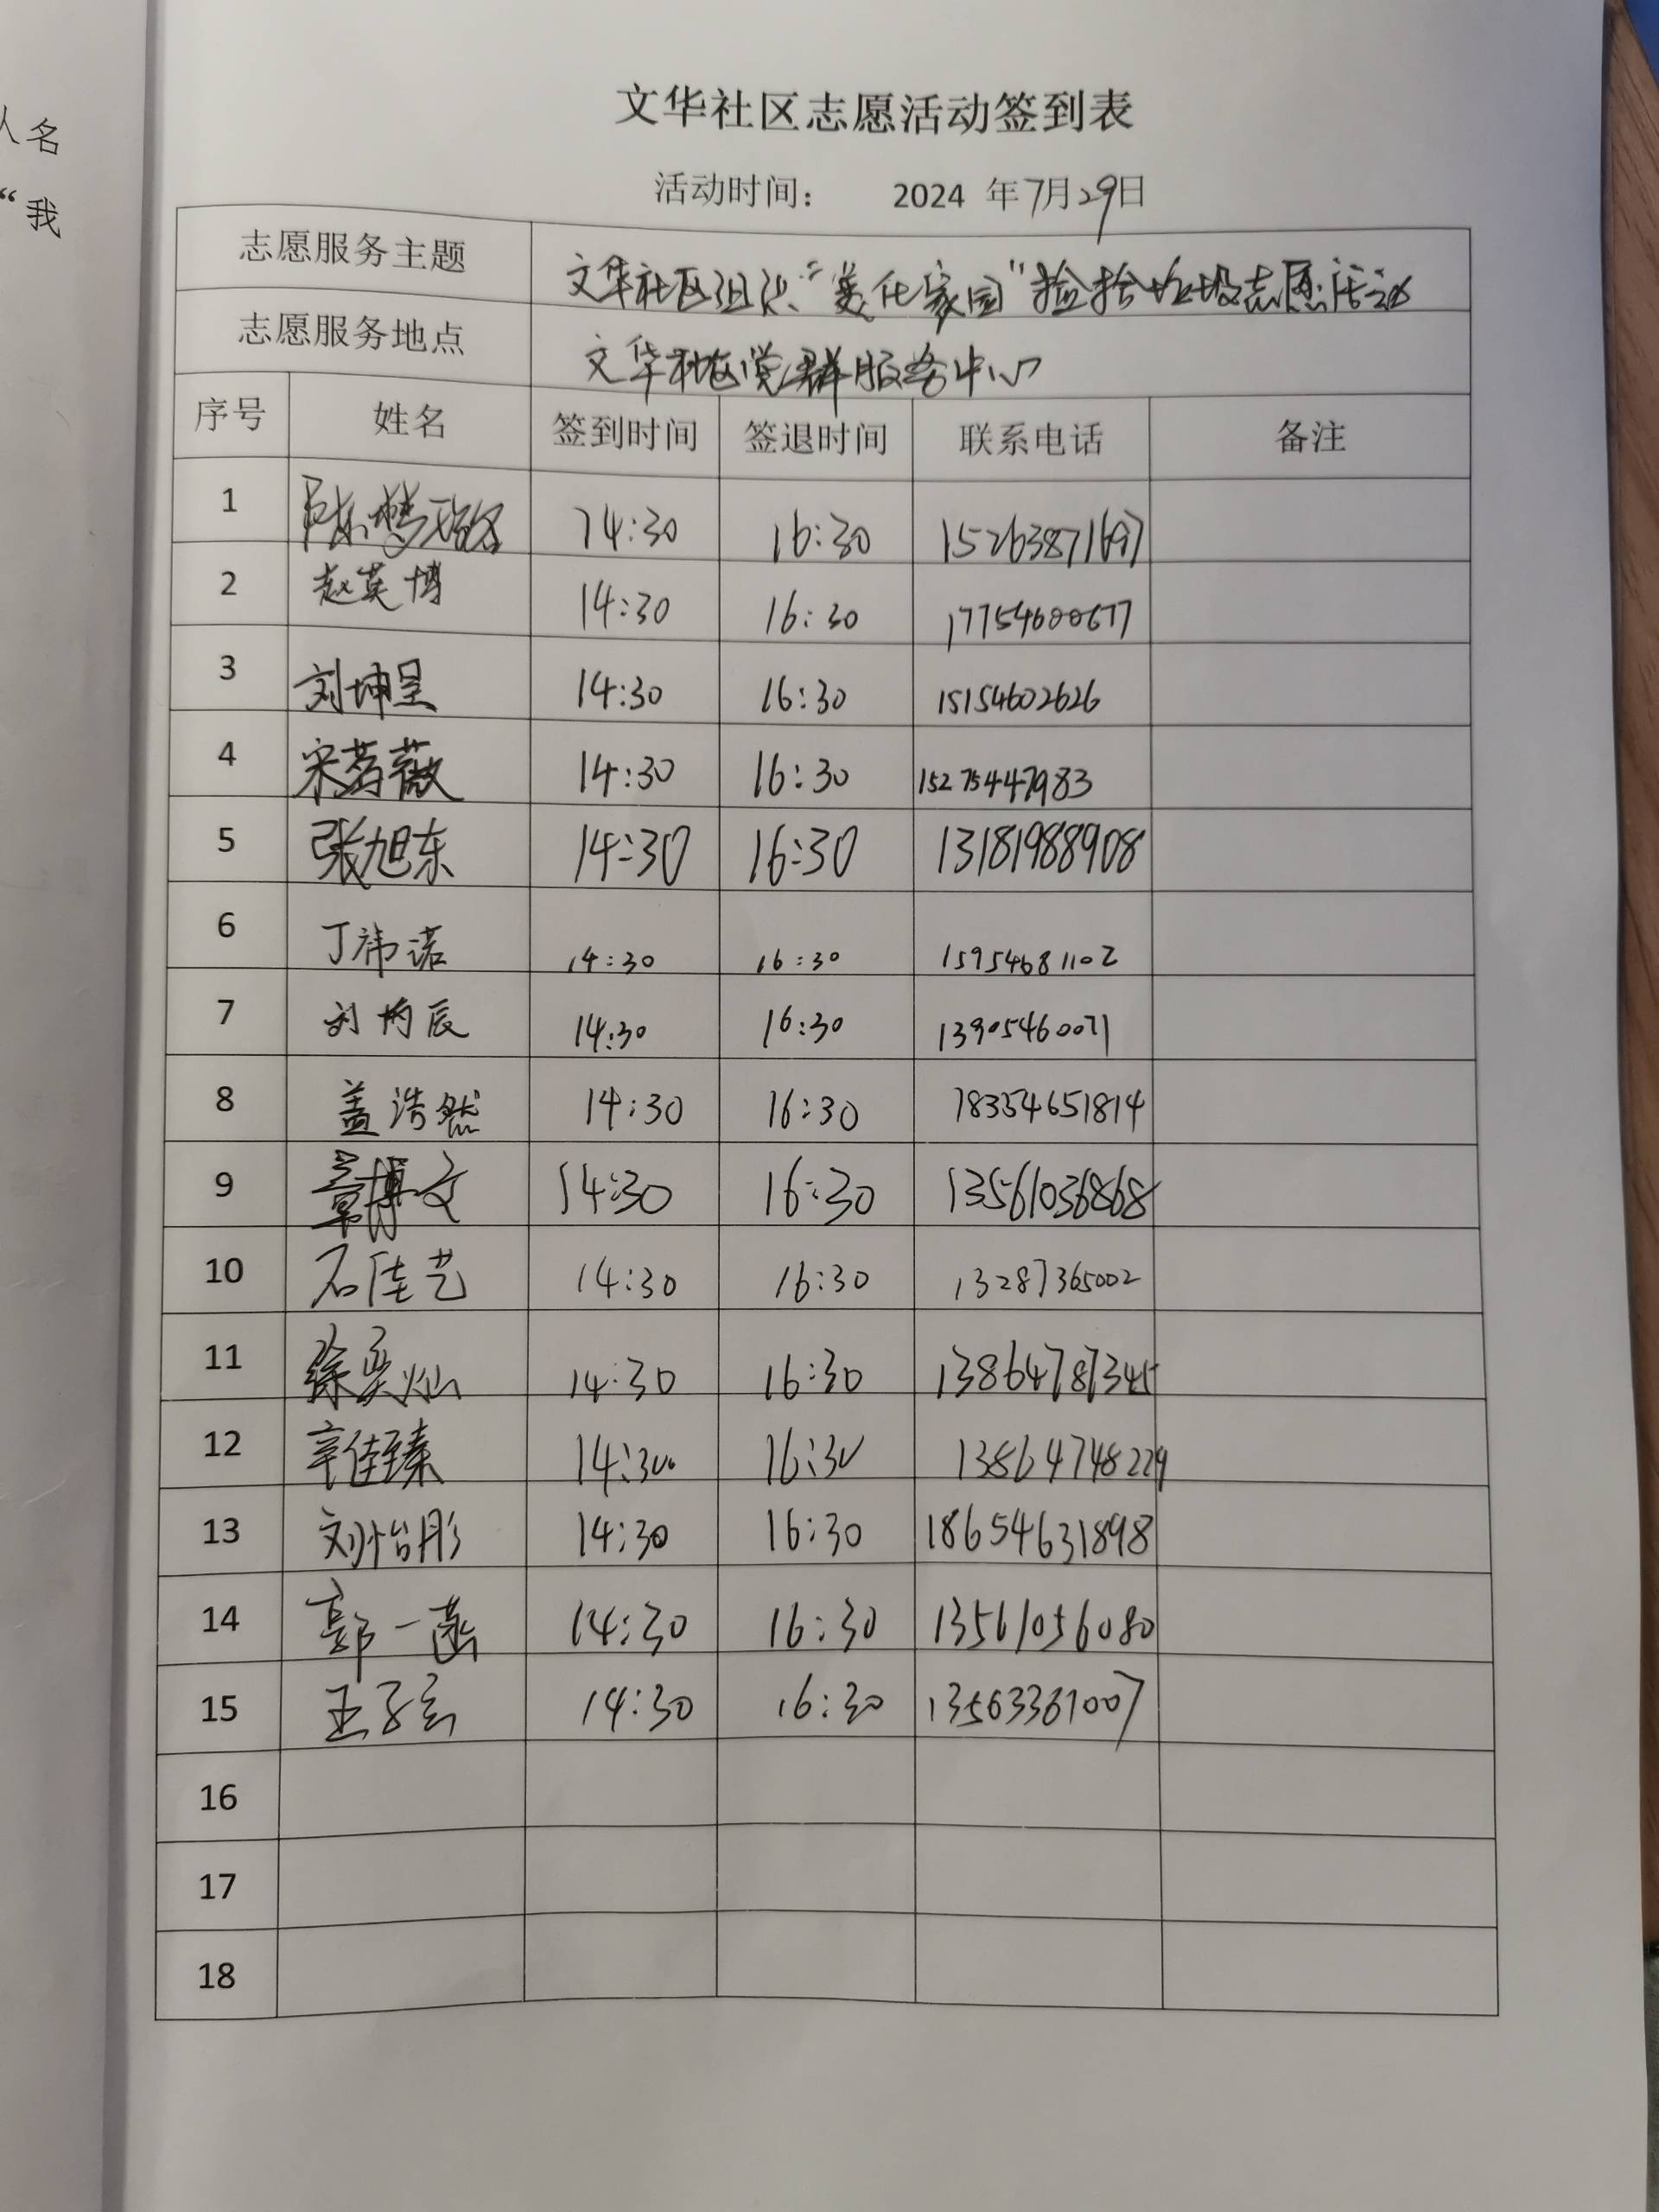 人名
“我
文华社区志愿活动签到表
活动时间： 2024 年7月29日
志愿服务主题 文华社区组织“美化家园”捡拾垃圾志愿活动
志愿服务地点 文华社区党群服务中心
序号 姓名 签到时间 签退时间 联系电话 备注
1 陈梦 14:30 16:30 15263871697
2 赵英博 14:30 16:30 17754600677
3 刘坤呈 14:30 16:30 15154602626
4 宋若薇 14:30 16:30 15275447983
5 张旭东 14:30 16:30 13181988908
6 丁祎诺 14:30 16:30 15954681102
7 刘均辰 14:30 16:30 13905460071
8 盖浩然 14:30 16:30 18354651814
9 章博文 14:30 16:30 13561036868
10 石佳艺 14:30 16:30 13287365002
11 徐奕灿 14:30 16:30 13864787345
12 辛佳臻 14:30 16:30 13864748229
13 刘怡彤 14:30 16:30 18654631898
14 郭一菡 14:30 16:30 13561056080
15 王子玄 14:30 16:30 13563361007
16
17
18